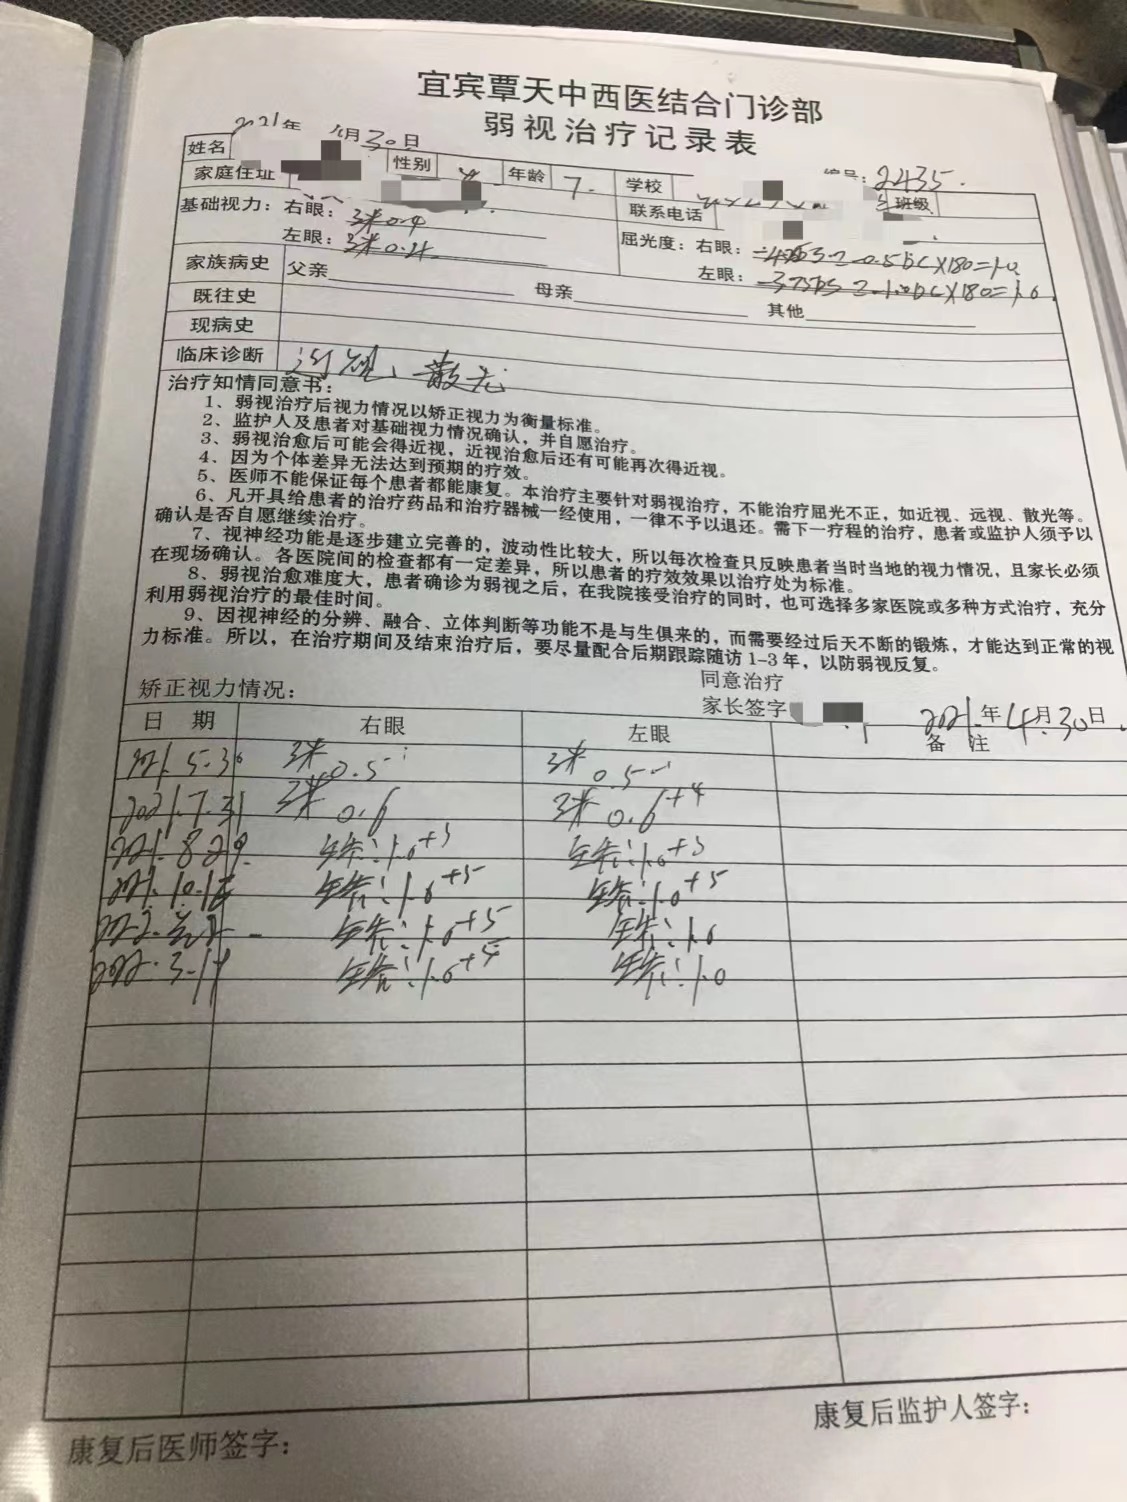 宜宾覃天中西医结合门诊部
弱视治疗记录表
2021年 4月30日
编号：2435.
姓名 性别 女 年龄 7. 学校 班级
家庭住址 联系电话
基础视力：右眼：3米0.4 屈光度：右眼：
左眼：3米0.4 左眼：
家族病史 父亲 母亲 其他
既往史
现病史
临床诊断 近视、散光
治疗知情同意书：
1、弱视治疗后视力情况以矫正视力为衡量标准。
2、监护人及患者对基础视力情况确认，并自愿治疗。
3、弱视治愈后可能会得近视，近视治愈后还有可能再次得近视。
4、因为个体差异无法达到预期的疗效。
5、医师不能保证每个患者都能康复。本治疗主要针对弱视治疗，不能治疗屈光不正，如近视、远视、散光等。
6、凡开具给患者的治疗药品和治疗器械一经使用，一律不予以退还。需下一疗程的治疗，患者或监护人须予以
确认是否自愿继续治疗。
7、视神经功能是逐步建立完善的，波动性比较大，所以每次检查只反映患者当时当地的视力情况，且家长必须
在现场确认。各医院间的检查都有一定差异，所以患者的疗效效果以治疗处为标准。
8、弱视治愈难度大，患者确诊为弱视之后，在我院接受治疗的同时，也可选择多家医院或多种方式治疗，充分
利用弱视治疗的最佳时间。
9、因视神经的分辨、融合、立体判断等功能不是与生俱来的，而需要经过后天不断的锻炼，才能达到正常的视
力标准。所以，在治疗期间及结束治疗后，要尽量配合后期跟踪随访 1-3 年，以防弱视反复。
同意治疗
矫正视力情况：
家长签字 2021.年4月30日
日 期 右眼 左眼 备 注
2021.5.30 3米0.5 3米0.5
2021.7.31 3米0.6 3米0.6+4
2021.8.29. 1.0+3 1.0+3
2021.10. 1.0+5 1.0+5
2022. 1.0+5 1.0
2022.3. 1.0+4 1.0
康复后监护人签字：
康复后医师签字：